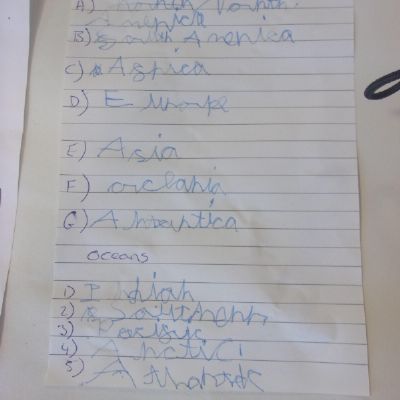 A) North North
America
B) South America
C) Africa
D) Eurhope
E) Asia
F) orclania
G) Antartica
oceans
1) Indian
2) Southern
3) Pacific
4) Arctic
5) Atlantic